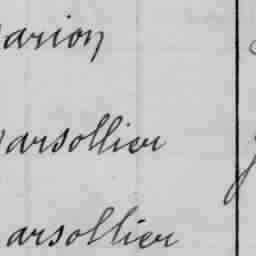 arion
arsollier
arsollier